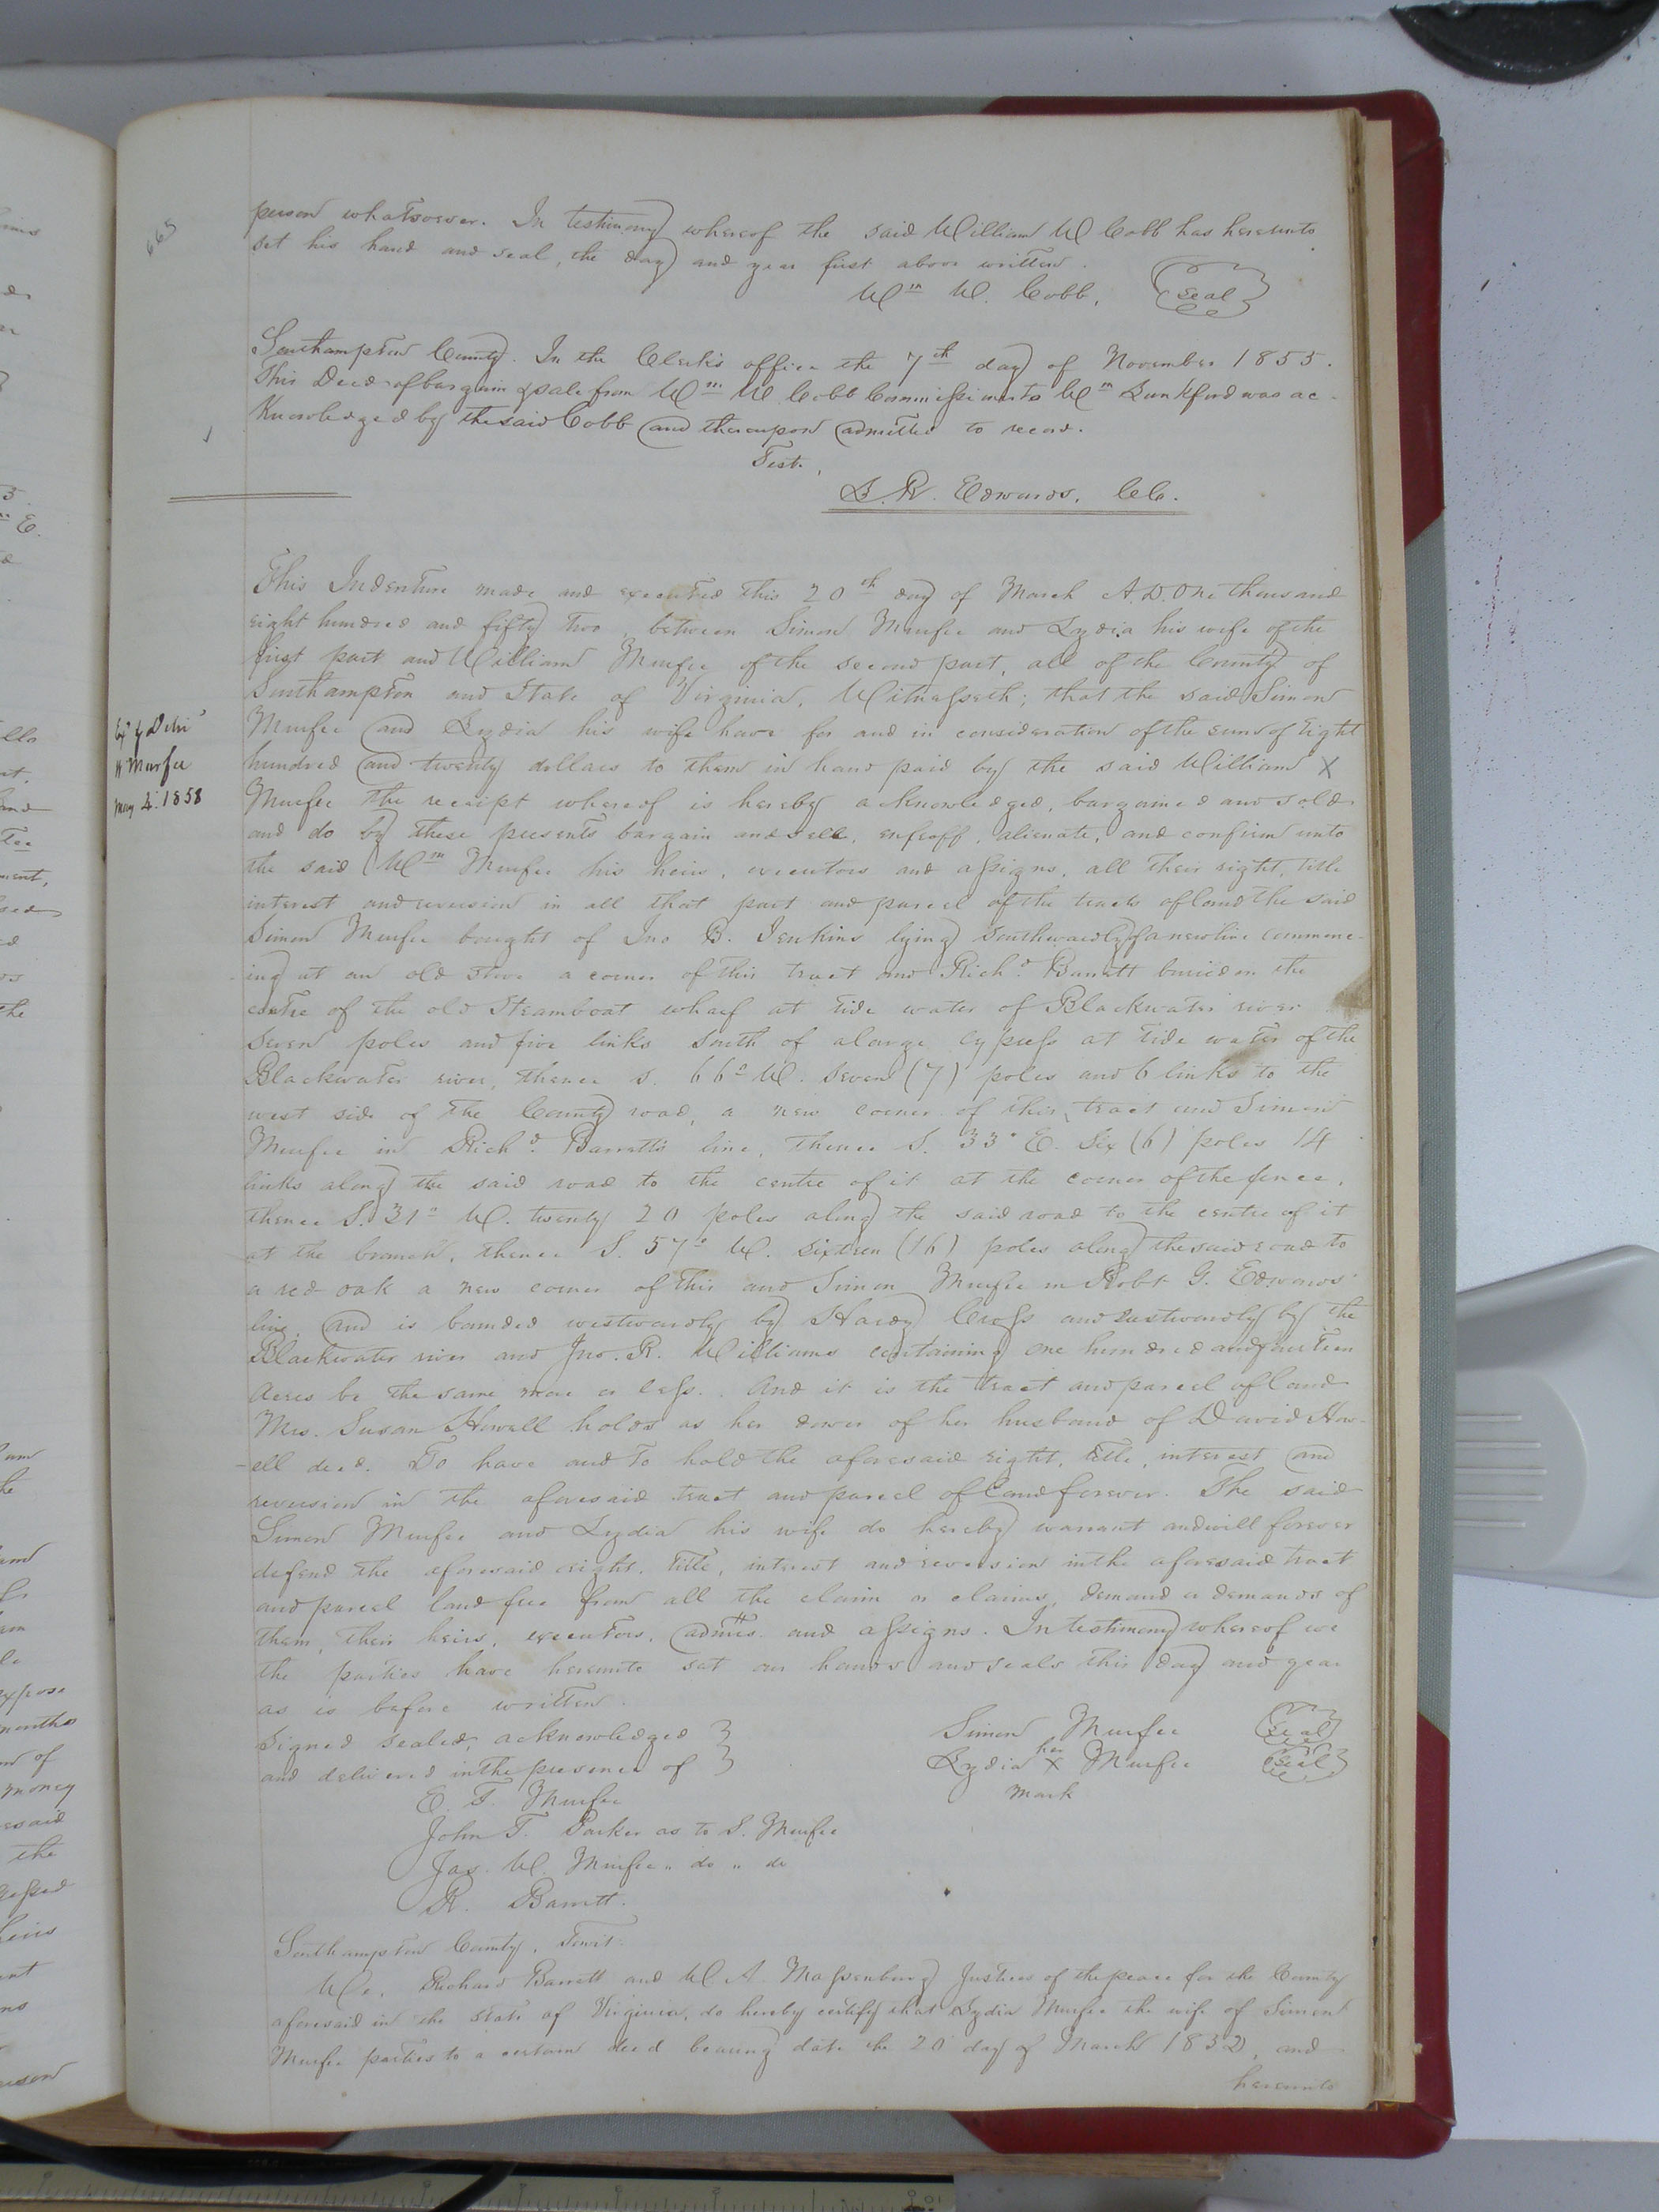 665
person whatsoever. In testimony whereof the said William W Cobb has hereunto
set his hand and seal, the day and year first above written.
Wm W. Cobb, Seal
Southampton County. In the Clerk's office the 7th day of November 1855.
This Deed of bargain & sale from Wm W Cobb Commissioner to Wm Lankford was ac-
knowledged by the said Cobb and thereupon admitted to record.
Test.,
L. R. Edwards, CC.
This Indenture made and executed this 20th day of March A.D. One thousand
eight hundred and fifty two, between Simon Murfee and Lydia his wife of the
first part and William Murfee of the second part, all of the County of
Southampton and State of Virginia, Witnesseth; that the said Simon
Murfee and Lydia his wife have for and in consideration of the sum of Eight
hundred and twenty dollars to them in hand paid by the said William X
Murfee the receipt whereof is hereby acknowledged, bargained and sold
and do by these presents bargain and sell, enfeoff, alienate, and confirm unto
the said Wm Murfee his heirs, executors and assigns, all their right, title
interest and reversion in all that part and parcel of the tracts of land the said
Simon Murfee bought of Jno B. Jenkins lying Southwardly of a new line commenc-
ing at an old stove a corner of this tract and Richd. Barrett buried in the
centre of the old Steamboat wharf at tide water of Blackwater river
seven poles and five links South of a large Cypress at tide water of the
Blackwater river, thence S. 66° W. seven (7) poles and 6 links to the
west side of the County road, a new corner of this tract and Simon
Murfee in Richd. Barretts line, thence S. 33° E. Six (6) poles 14
links along the said road to the centre of it at the corner of the fence,
thence S. 31° W. twenty 20 poles along the said road to the centre of it
at the branch, thence S. 57° W. sixteen (16) poles along the said road to
a red oak a new corner of this and Simon Murfee in Robt. G. Edwards'
line, and is bounded westwardly by Hardy Cross and eastwardly by the
Blackwater river and Jno. R. Williams containing one hundred and fourteen
Acres be the same more or less. And it is the tract and parcel of land
Mrs. Susan Howell holds as her dower of her husband of David How-
ell decd. To have and to hold the aforesaid right, title, interest and
reversion in the aforesaid tract and parcel of land forever. The said
Simon Murfee and Lydia his wife do hereby warrant and will forever
defend the aforesaid right, title, interest and reversion in the aforesaid tract
and parcel land free from all the claim or claims, demand or demands of
them, their heirs, executors, admrs. and assigns. In testimony whereof we
the parties have hereunto set our hands and seals this day and year
as is before written.
Signed sealed, acknowledged
and delivered in the presence of
Simon Murfee Seal
Lydia her X Murfee Seal
mark
E. T. Murfee
John T. Parker as to S. Murfee
Jas. W. Murfee " do " do
R. Barrett.
Southampton County, Towit:
We, Richard Barrett and W A. Massenburg Justices of the peace for the County
aforesaid in the State of Virginia, do hereby certify that Lydia Murfee the wife of Simon
Murfee parties to a certain deed bearing date the 20 day of March 1852, and
hereunto
Murfee
May 4. 1858